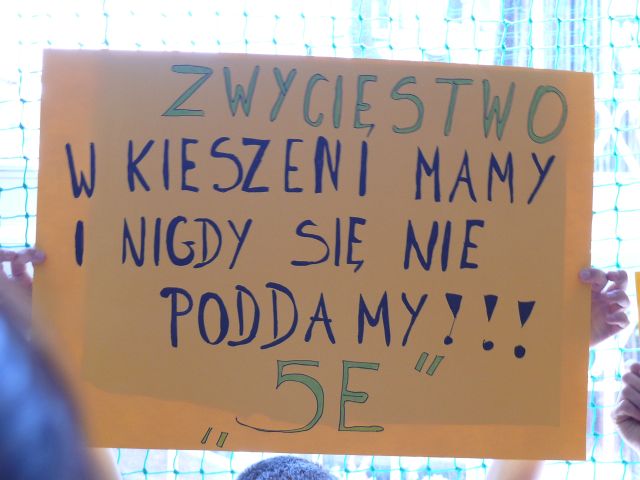 ZWYCIĘSTWO
W KIESZENI MAMY
I NIGDY SIĘ NIE
PODDAMY!!!
„5E”